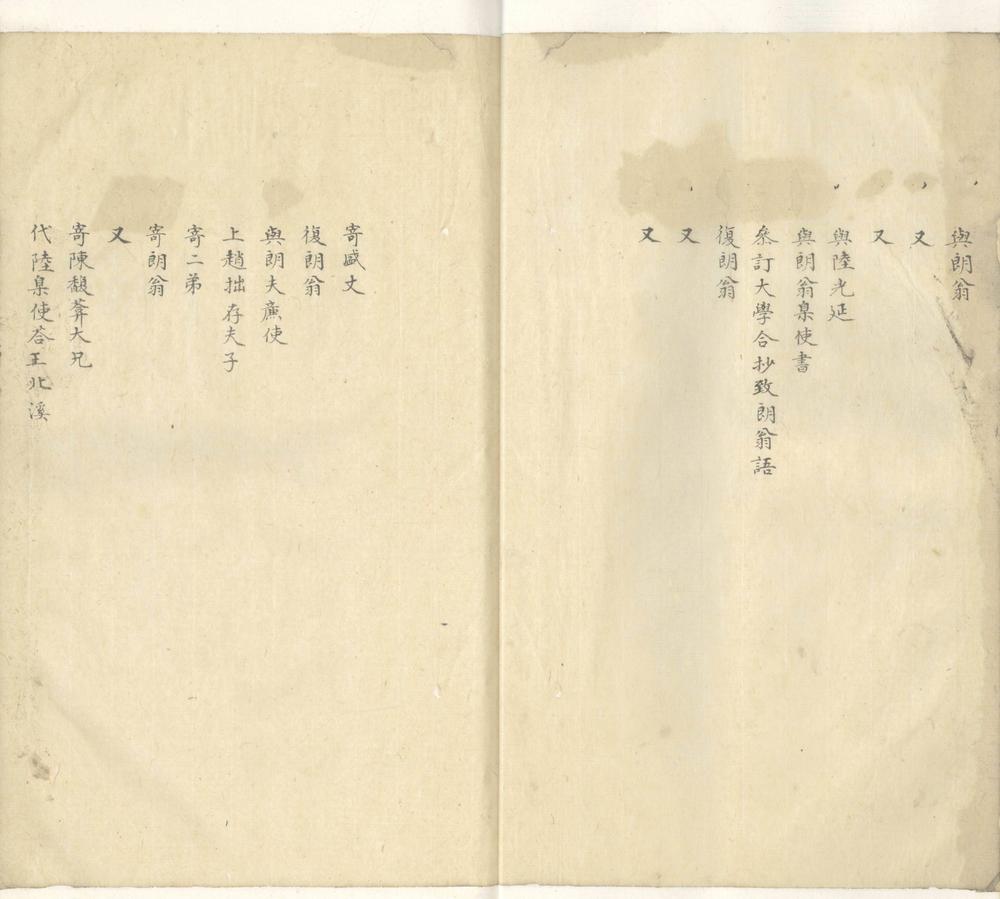 與朗翁
又
又
與陸光延
與朗翁臬使書
叅訂大學合抄致朗翁語
復朗翁
又
又
寄盛丈
復朗翁
與朗夫廉使
上趙拙存夫子
寄二弟
寄朗翁
又
寄陳馥葊大兄
代陸臬使荅王北溪